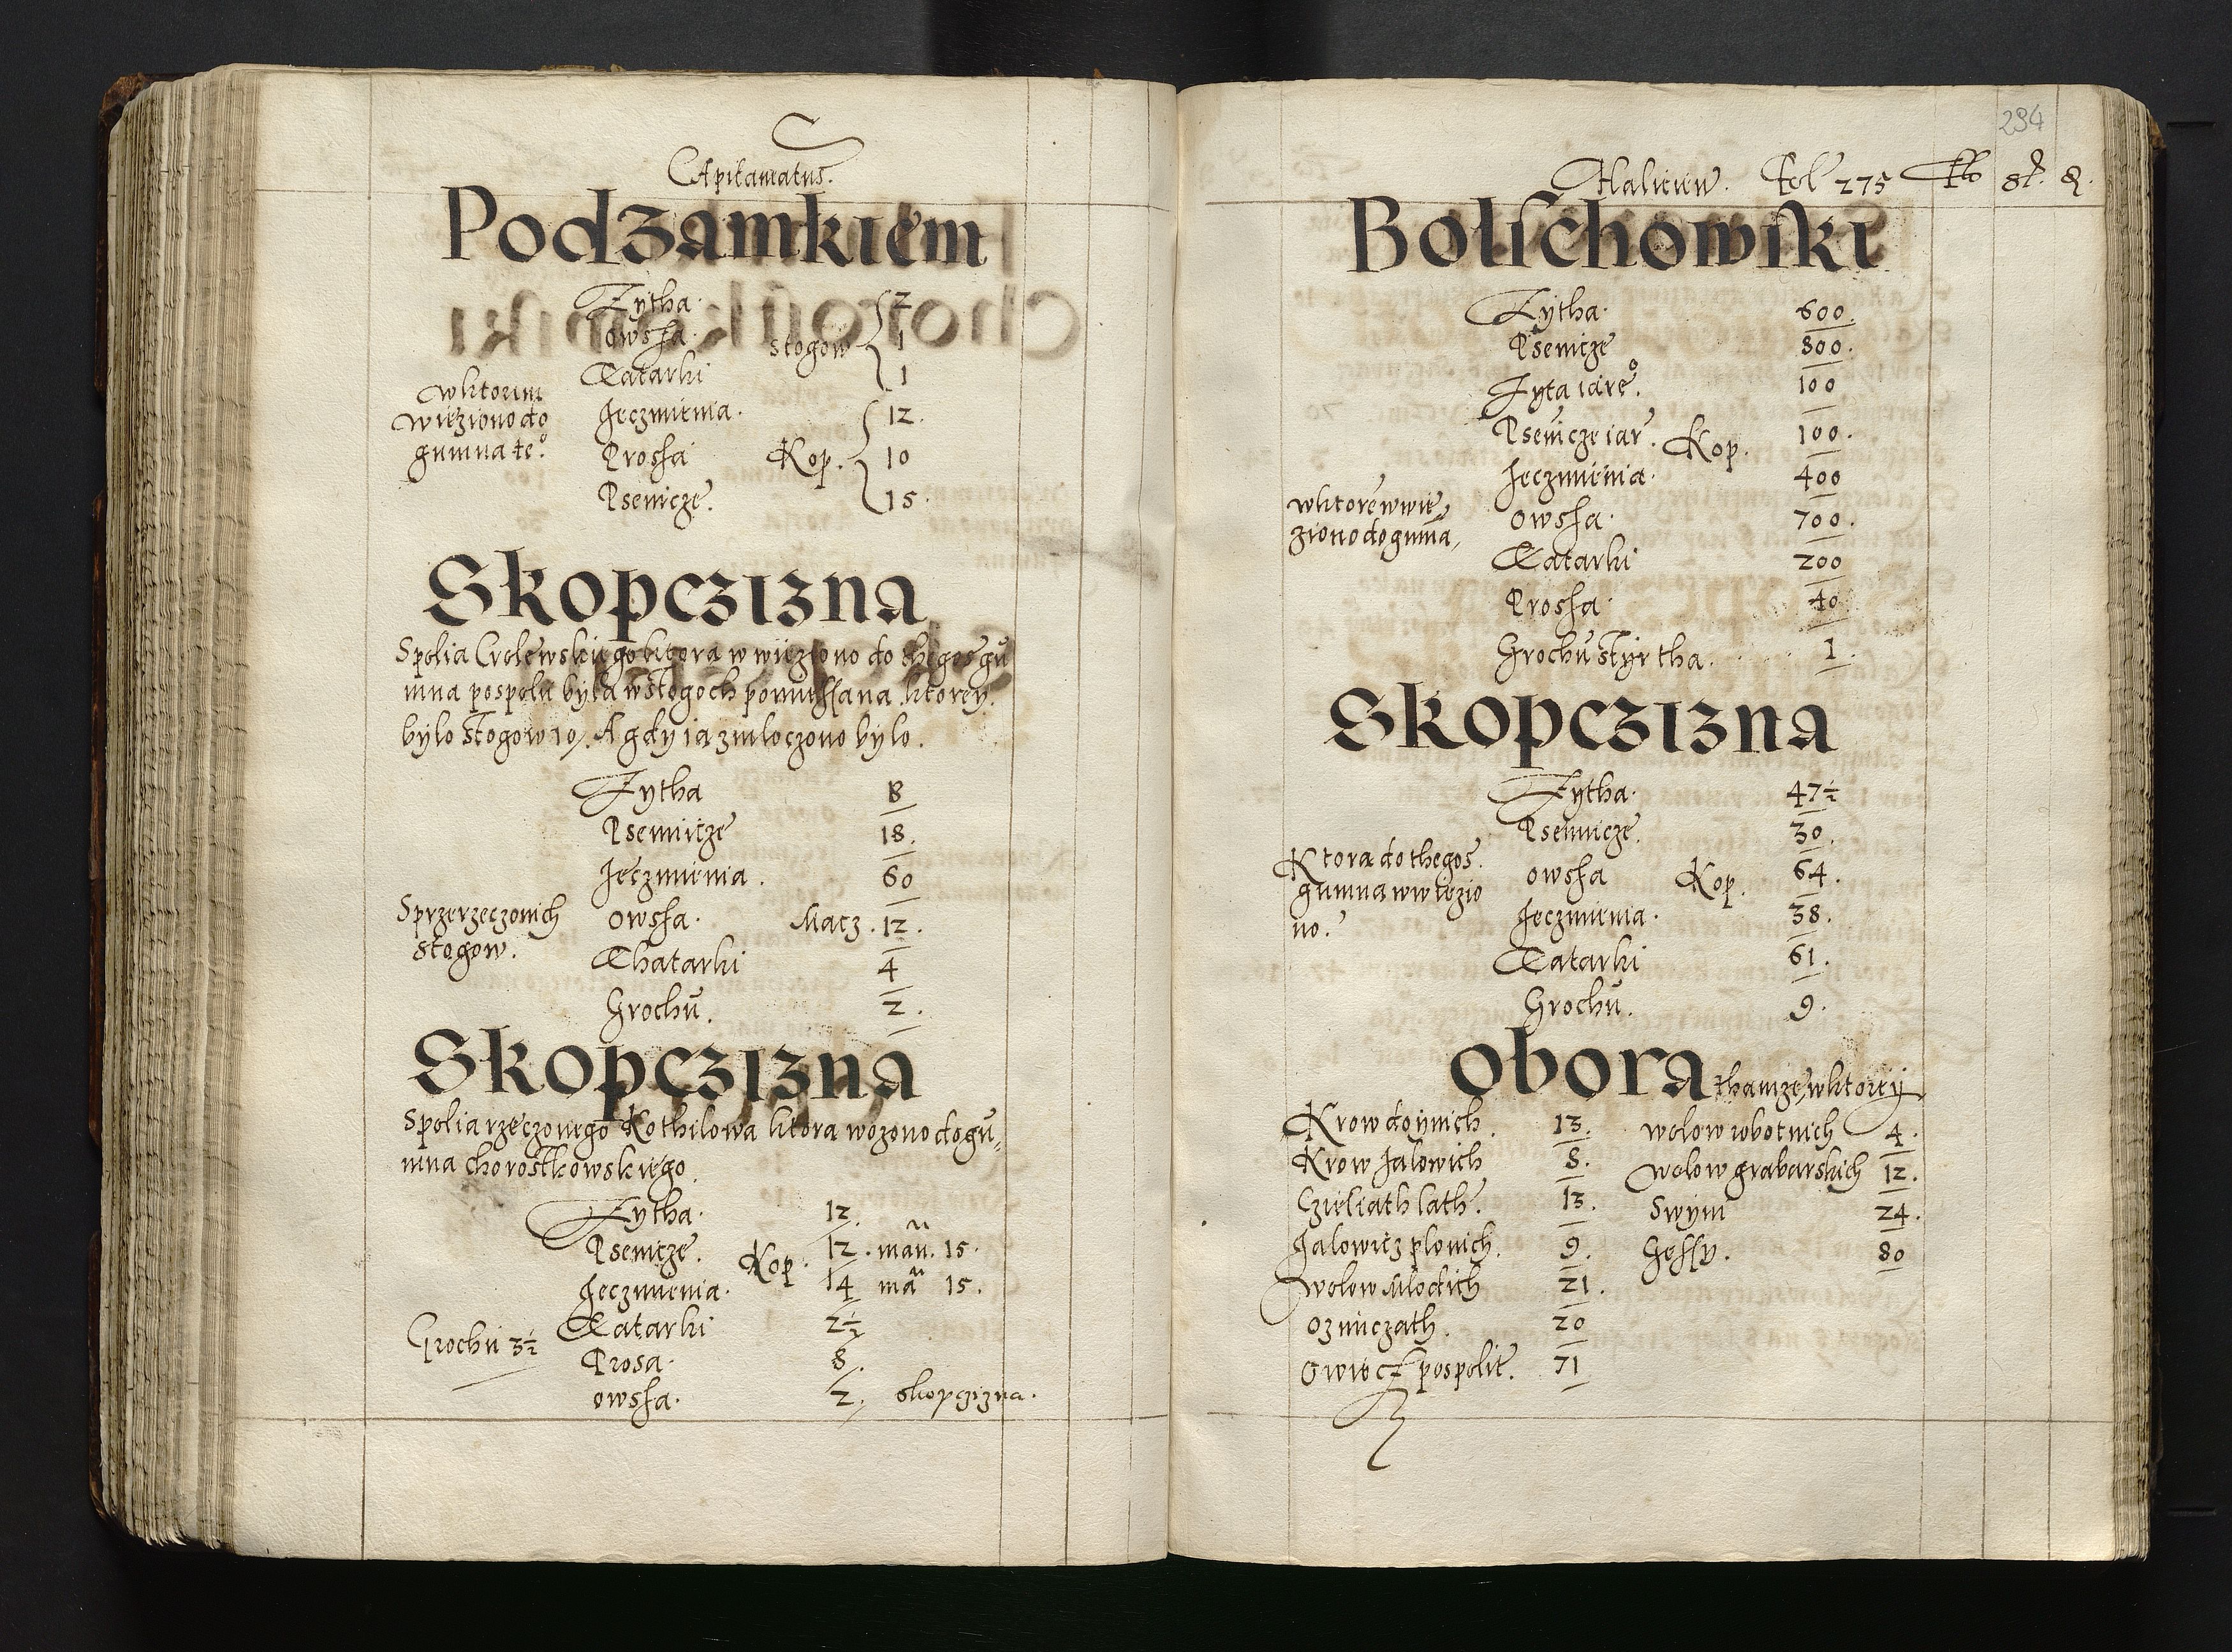 Capitaneatus.
Podzamkiem
Zytha. 2
owssa. stogow 1
Tatarki 1
wktorim
wiezionodo
gumna te°.
Jeczmienia. 12.
Prossa Kop. 10
Psenicze. 15.
Skopczizna
Spolia Crolewskiego ktora w wieziono do thegosz gu
mna pospolu byla wstogoch pomiessana. ktorey.
bylo stogow 10. A gdy ia zmloczono bylo.
Zytha 8
Psennicze 18.
Jeczmienia. 60
Sprzerzeczonich
stogow.
owssa. Macz. 12.
Thatarki 4
Grochu. 2.
Skopczizna
Spolia rzeczonego Kothilowa ktora wozono dogu,,
mna chorostkowskiego.
Zytha. 12.
Psenicze. Kop. 12. man. 15.
Jeczmienia. 14 ma 15.
Grochu 3½
Tatarki 2½
Prosa. 8.
owssa. 2. skopczizna.
294
Haliciew. Fol 275 st.
Bolschowski
Zytha. 600.
Psenicze 800.
Zyta iare°. 100
Psenicze iar. Kop. 100.
Jeczmienia. 400
wktore wwie,,
zionodogumna,
owssa. 700.
Tatarki 200
Prossa. 40
Grochu styrtha. 1.
Skopczizna
Zytha. 47½
Psennicze. 30.
Ktora do thegos.
gumna wwiezio
no.
owssa Kop. 64.
Jeczmienia. 38.
Tatarki 61.
Grochu. 9.
obora thamze, wktorey
Krow doynich. 13. wolow robotnich 4.
Krow Jalowich 8. wolow grabarskich 12.
Czieliath lath. 13. Swyni 24.
Jalowicz plonich. 9. Gessy. 80
wolow Mlodich 21.
ozimczath. 20
owiecz pospolit. 71